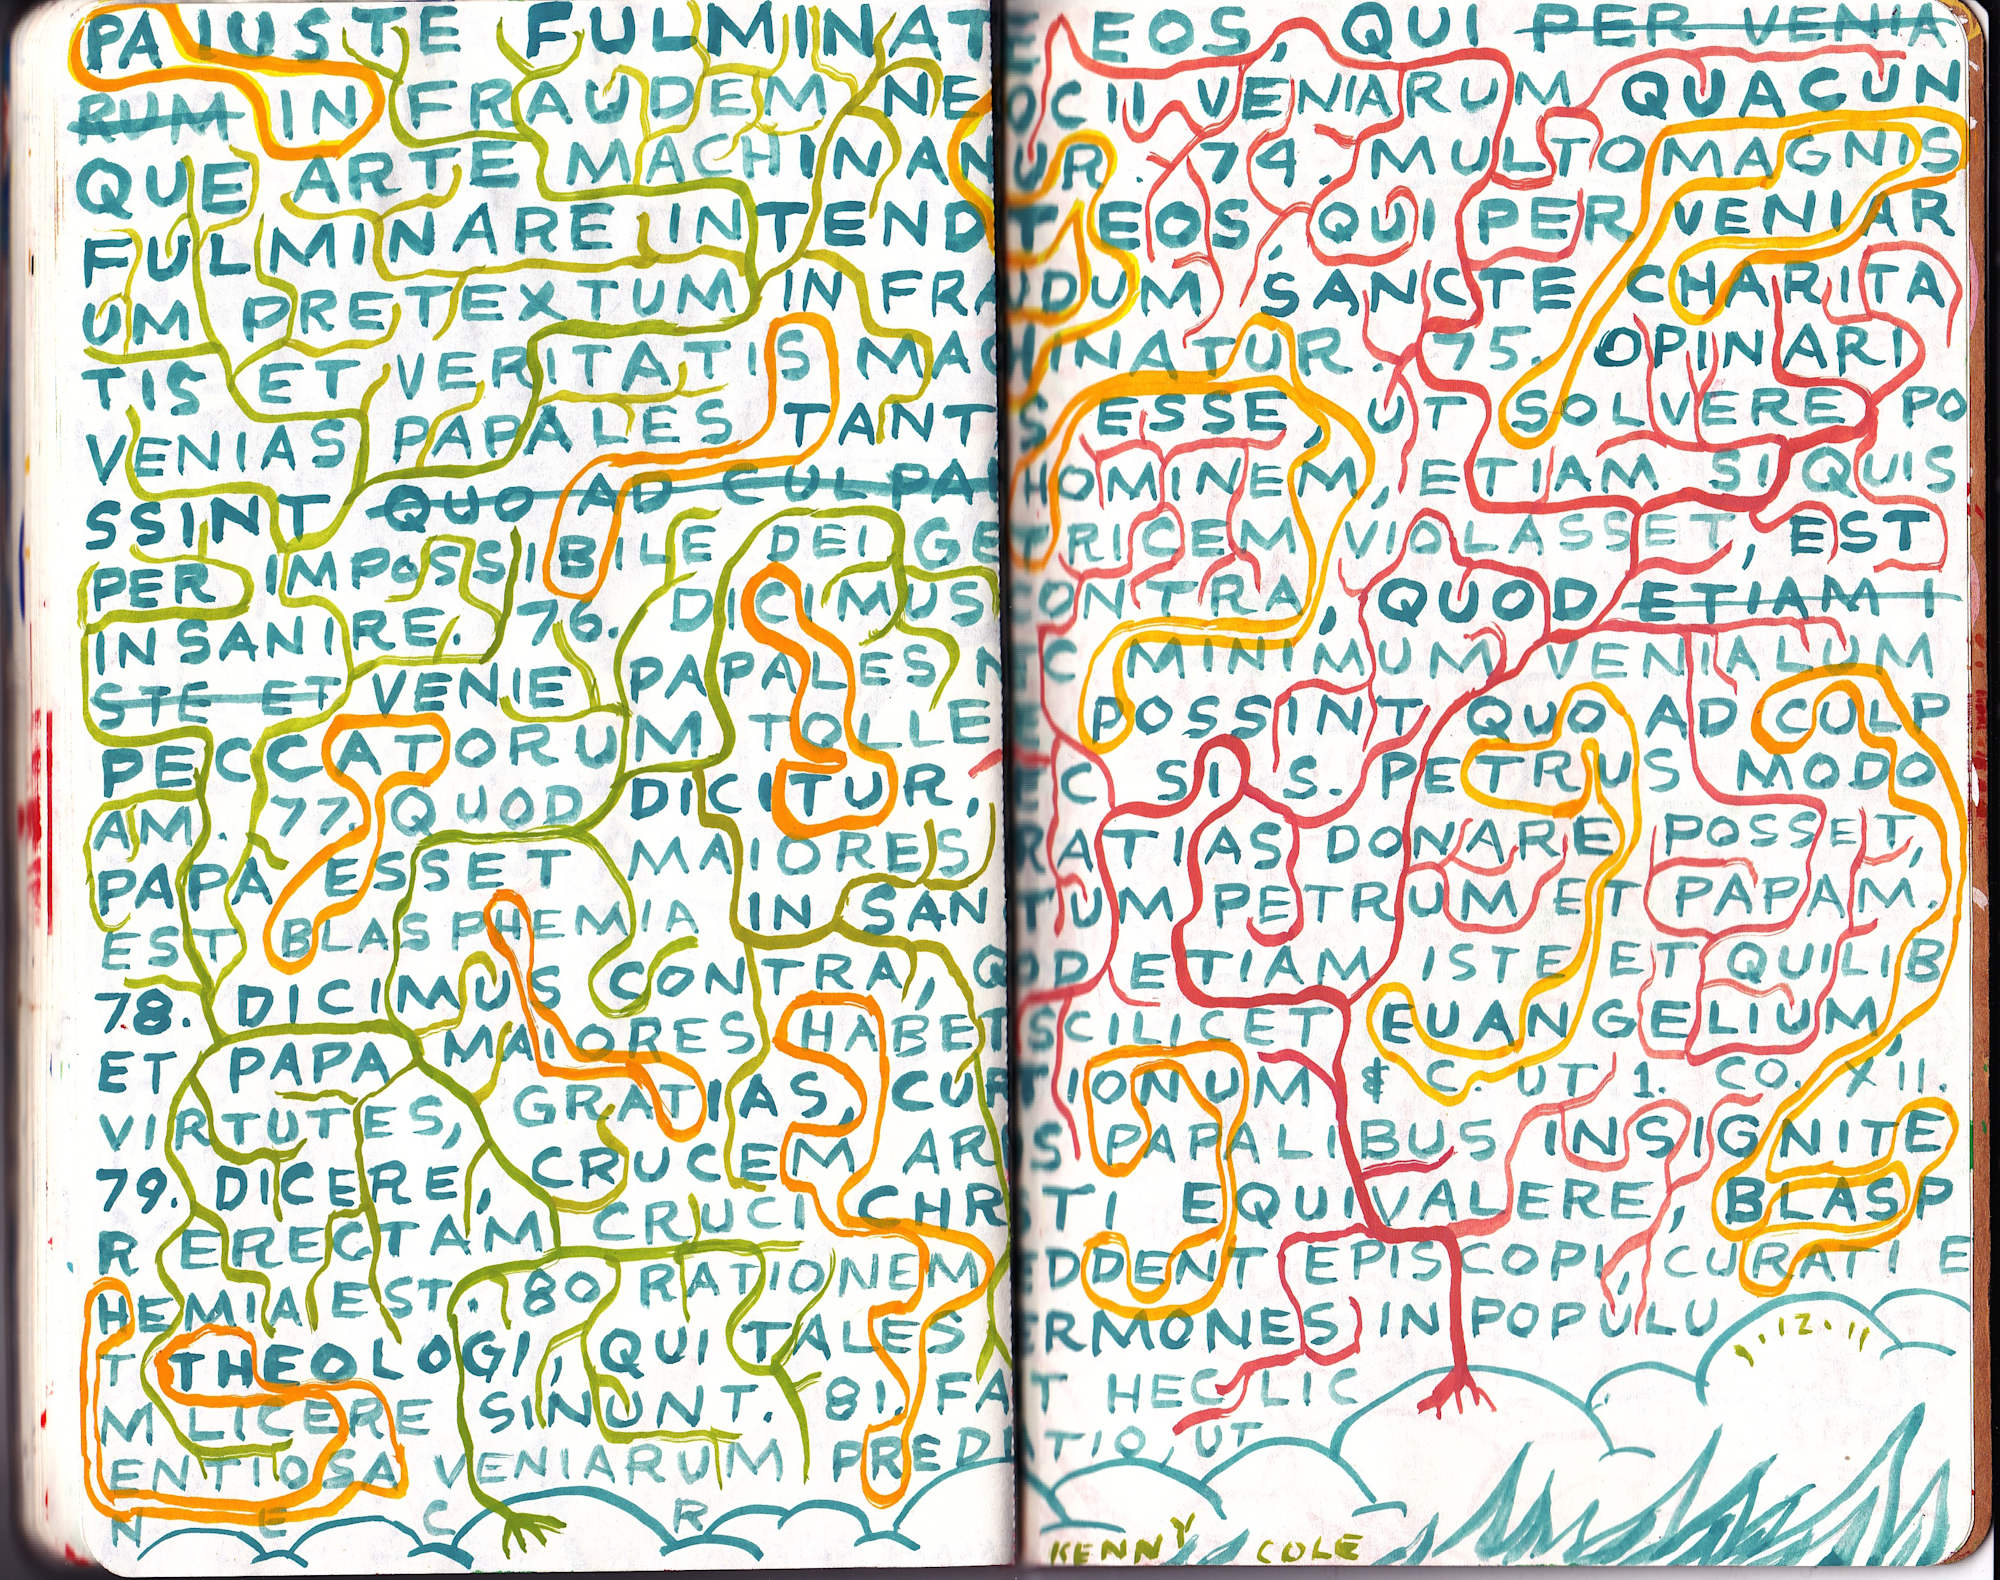 PA IUSTE FULMINATE EOS, QUI PER VENIA
RUM IN FRAUDEM NEOCII VENIARUM QUACUN
QUE ARTE MACHINANUR. 74. MULTOMAGNIS
FULMINARE INTENDIT EOS, QUI PER VENIAR
UM PRETEXTUM IN FRAUDUM SANCTE CHARITA
TIS ET VERITATIS MACHINATUR. 75. OPINARI
VENIAS PAPALES TANTS ESSE, UT SOLVERE PO
SSINT QUO AD CULPAM HOMINEM, ETIAM SI QUIS
PER IMPOSSIBILE DEI GETRICEM VIOLASSET, EST
INSANIRE. 76. DICIMUS CONTRA, QUOD ETIAM I
STE ET VENIE PAPALES NEC MINIMUM VENIALUM
PECCATORUM TOLLERE POSSINT QUO AD CULP
AM. 77. QUOD DICITUR, EC SI S. PETRUS MODO
PAPA ESSET MAIORES RATIAS DONARE POSSET,
EST BLASPHEMIA IN SANTUM PETRUM ET PAPAM.
78. DICIMUS CONTRA, QOD ETIAM ISTE ET QUILIB
ET PAPA MAIORES HABET SCILICET EUANGELIUM,
VIRTUTES, GRATIAS, CURTIONUM & C. UT 1. CO. XII.
79. DICERE, CRUCEM ARS PAPALIBUS INSIGNITE
R ERECTAM CRUCI CHRSTI EQUIVALERE, BLASP
HEMIA EST. 80 RATIONEM EDDENT EPISCOPI, CURATI E
T THEOLOGI, QUI TALES ERMONES IN POPULU
M LICERE SINUNT. 81. FAT HEC LIC
ENTIOSA VENIARUM PREDIATIO, UT
N E C R
1.12.11
KENNY COLE